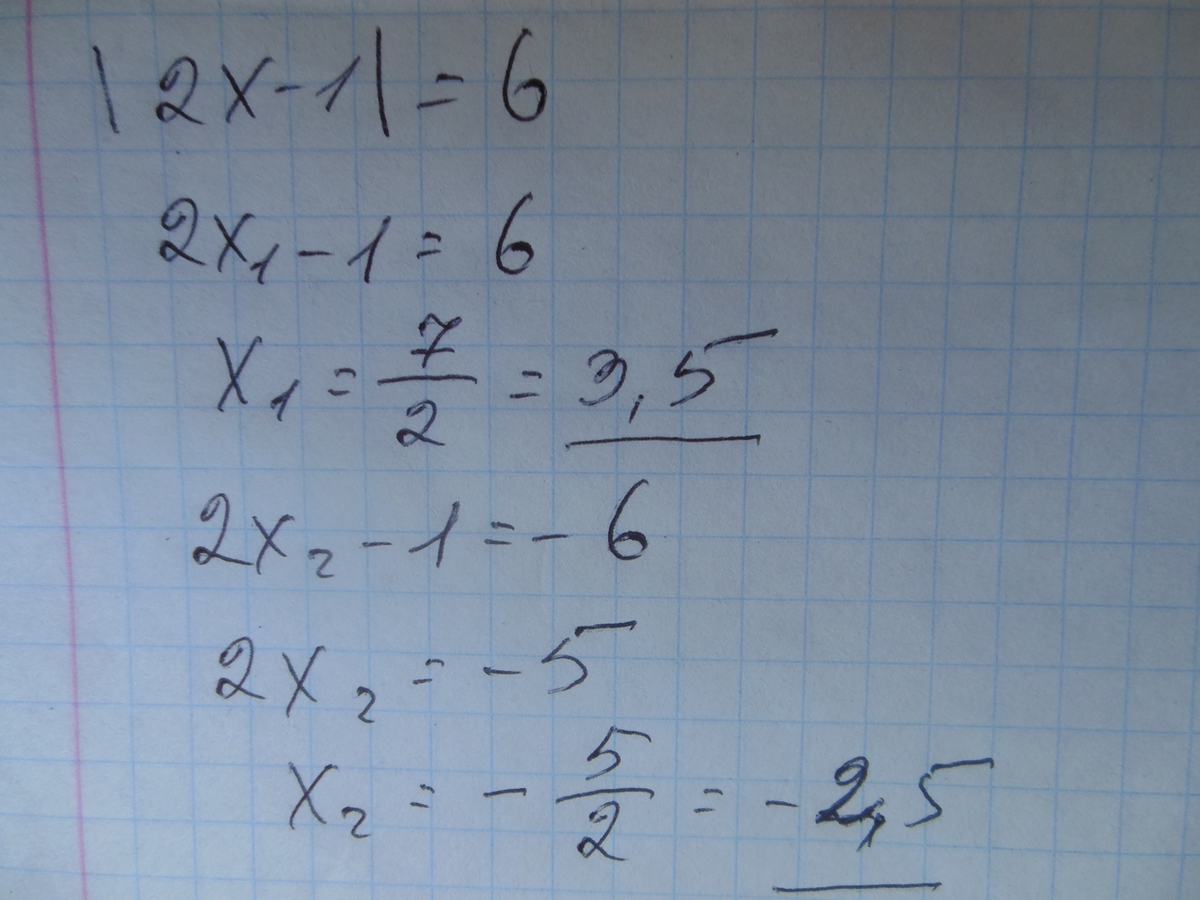 |2x-1| = 6
2x₁ - 1 = 6
x₁ = 7/2 = 3,5
2x₂ - 1 = - 6
2x₂ = - 5
x₂ = - 5/2 = - 2,5